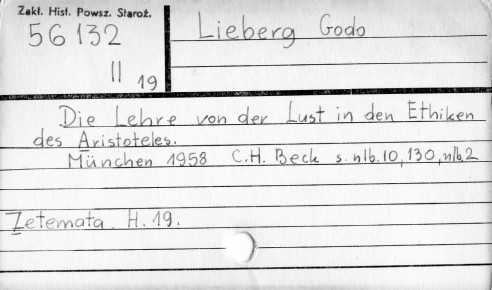 Zakł. Hist. Powsz. Staroż.
56132
II 19
Lieberg Godo
Die Lehre von der Lust in den Ethiken
des Aristoteles.
München 1958 C.H. Beck s. nlb. 10, 130, nlb. 2
Zetemata. H. 19.